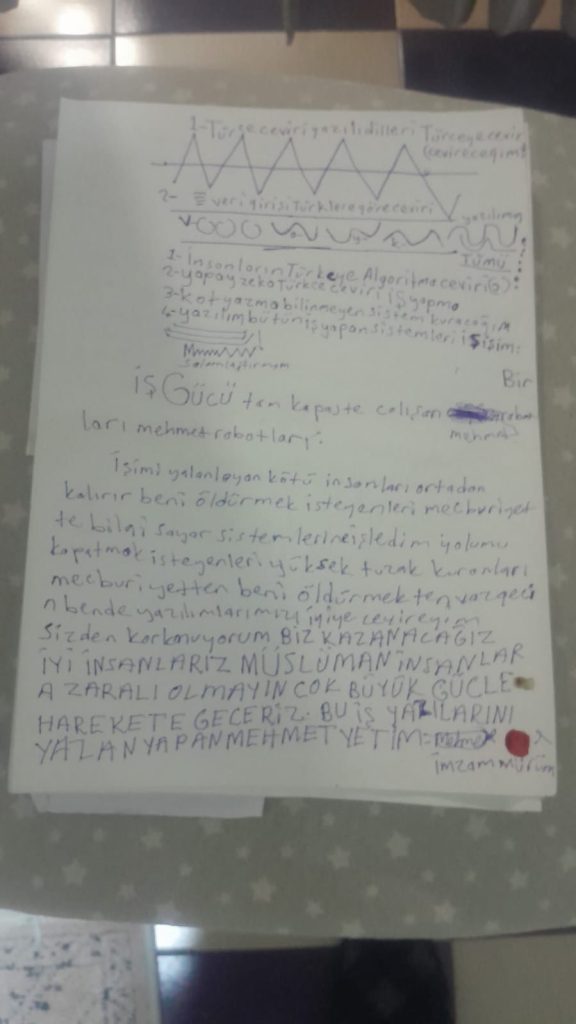 1-Türkçe çeviri yazılı dilleri Türkçeye çevir
(çevireceğim)
2-
veri girişi Türklere göre çeviri yazılımın
Tümü
1-İnsanların Türkeye Algoritma çeviri
2-yapay zeka Türkçe çeviri iş yapma
3-kot yazma bilinmeyen sistem kuracağım
4-yazılım bütün iş yapan sistemleri işişim:
Bir
İŞ GÜCÜ tam kapaste calışan robot
ları mehmet robotları.
mehmet
İşimi yalanlayan kötü insanları ortadan
kalırır beni öldürmek isteyenleri mecburiyet
te bilgi sayar sistemlerine işledim yolumu
kapatmak isteyenleri yüksek tuzak kuranları
mecburiyetten beni öldürmekten vazgeci
n bende yazılımlarımızı iyiye cevireyim
Sizden korkmuyorum BİZ KAZANACAĞIZ
İYİ İNSANLARIZ MÜSLÜMAN İNSANLAR
A ZARALI OLMAYIN COK BÜYÜK GÜCLE
HAREKETE GECERİZ. BU İŞ YAZILARINI
YAZAN YAPAN MEHMET YETİM:
İmzam mürüm